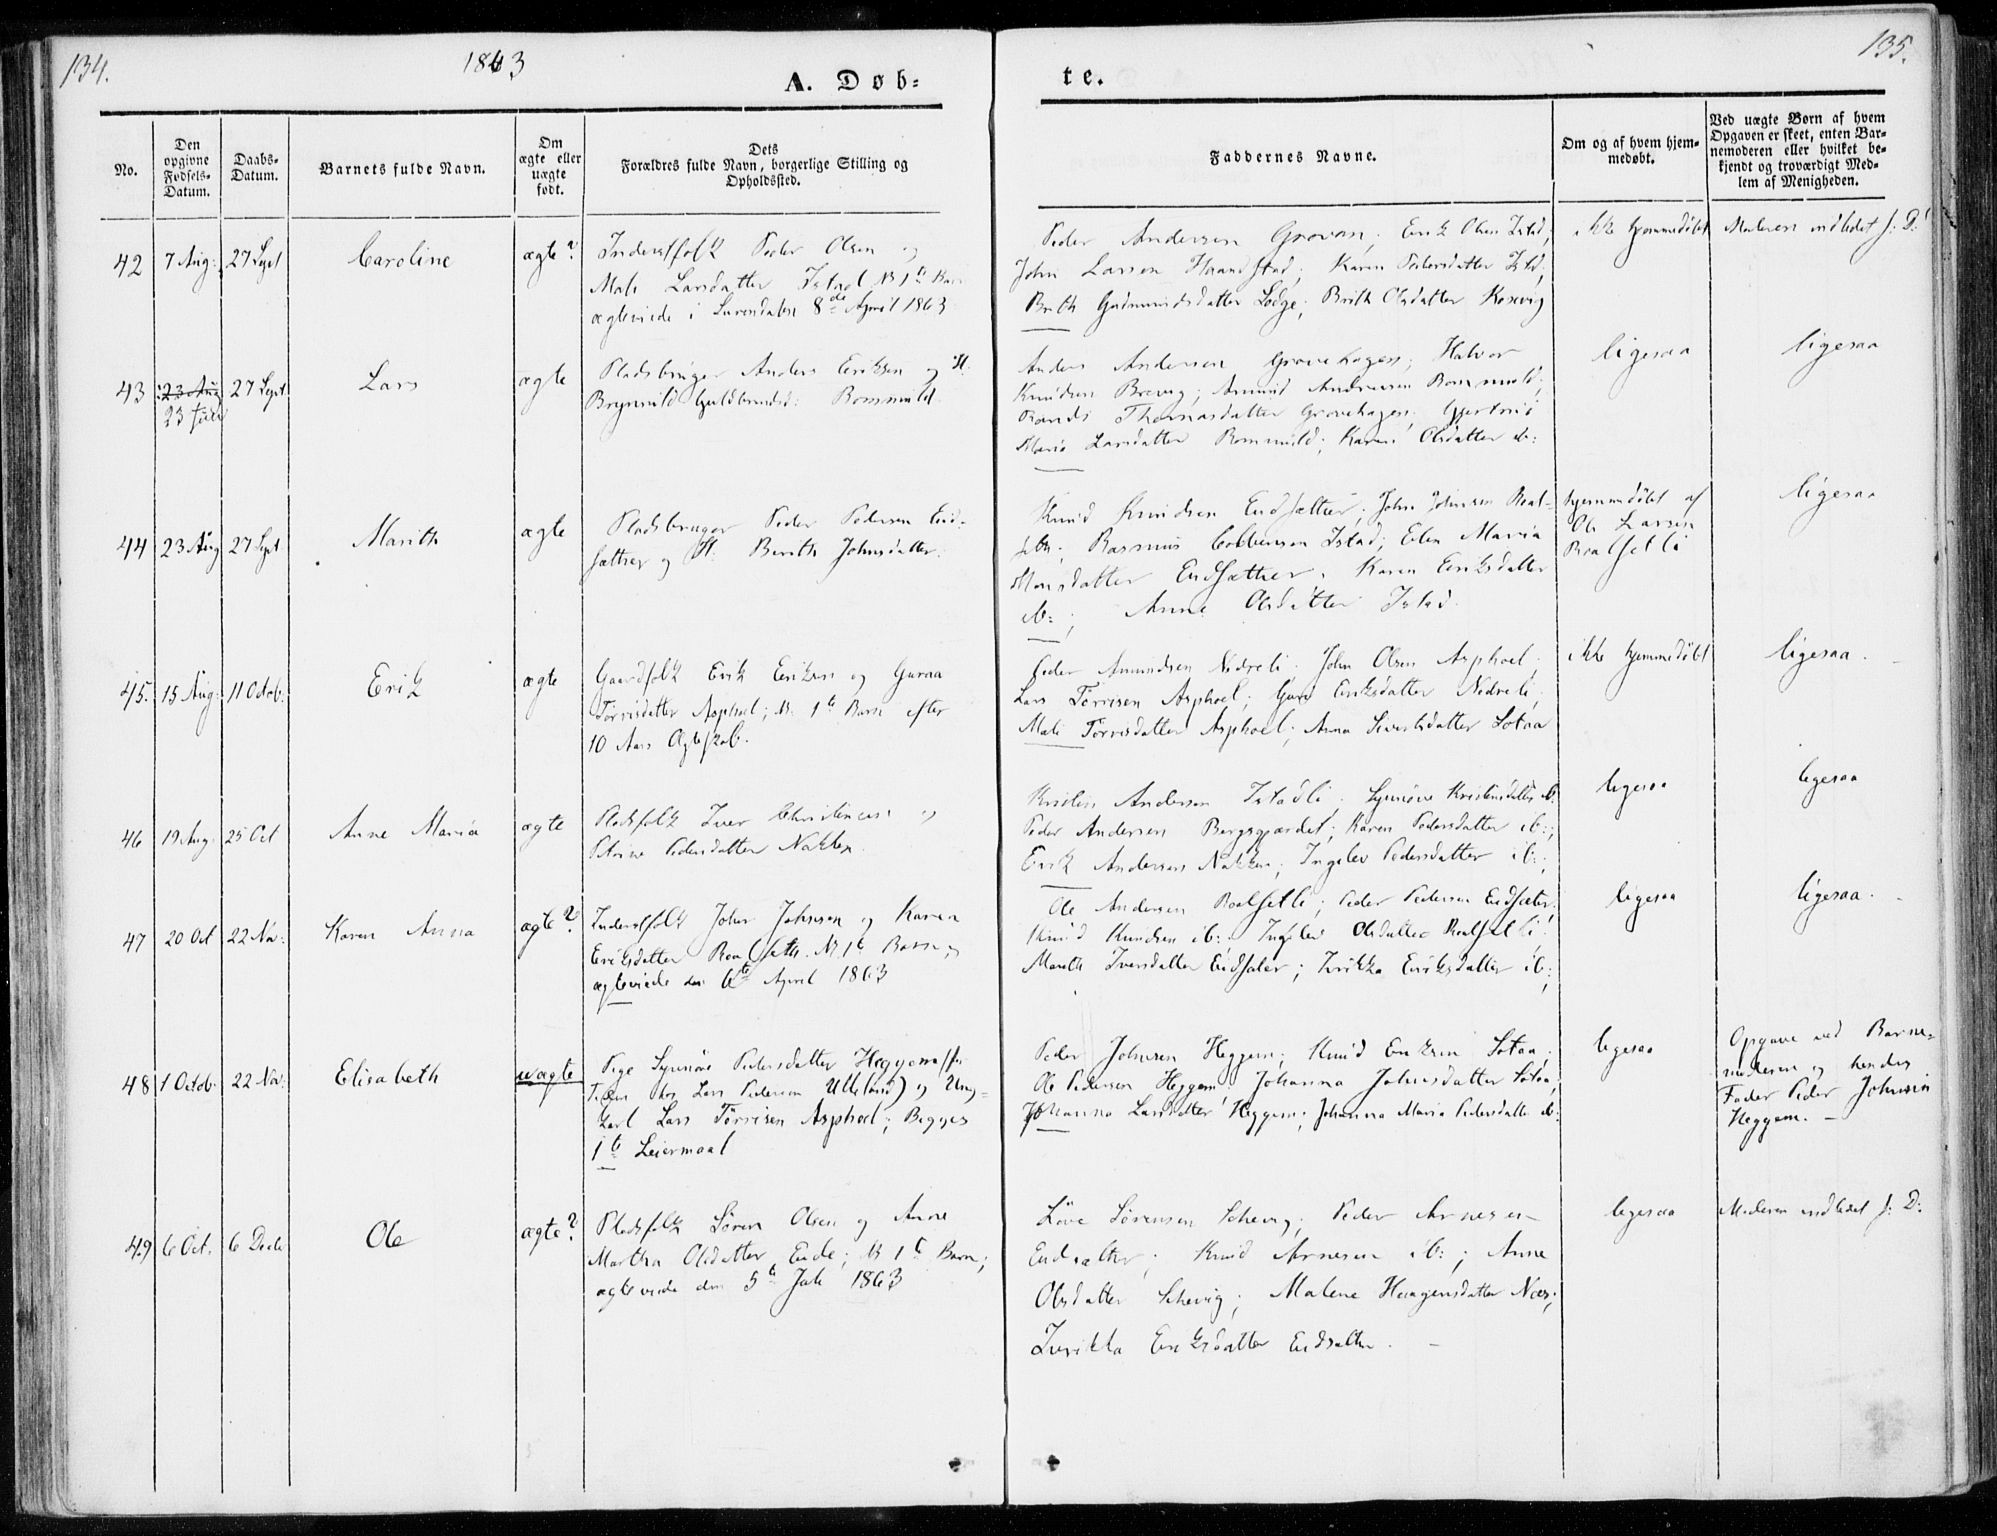 134.
1863
A. Døb=
te.
135.
No.
Den opgivne Fødsels-Datum.
Daabs-Datum.
Barnets fulde Navn.
Om ægte eller uægte født.
Dets Forældres fulde Navn, borgerlige Stilling og Opholdssted.
Faddernes Navne.
Om og af hvem hjem-medøbt.
Ved uægte Børn af hvem Opgaven er skeet, enten Bar-nemoderen eller hvilket be-kjendt og troværdigt Med-lem af Menigheden.
42 7 Aug: 27 Sept Caroline ægte?
Inderstfolk Peder Olsen og
Mali Larsdatter Istad N 1ste Barn
ægteviede i Surendalen 8de April 1863
Peder Andersen Grovan; Erik Olsen Istad;
John Larsen Haandstad; Karen Pedersdatter Istd;
Brith Gudmundsdatter Lødge; Brith Olsdatter Korsvig
ikke hjemmedøbt
Moderen indledet s: D:
43 23 Aug 23 Juli 27 Sept. Lars ægte
Pladsbruger Anders Eriksen og H:
Brynnild Guldbrandsd: Rommuld.
Anders Andersen Grovehagen; Halvor
Knudsen Brevig; Amund Andersen Rommuld;
Randi Thomasdatter Grovehagen; Gjertrud
Maria Larsdatter Rommuld; Karen Olsdatter ib:
ligesaa
ligesaa
44 23 Aug 27 Sept Marith ægte
Pladsbruger Peder Pedersen End-
sæther og H. Berith Johnsdatter.
Knud Knudsen Endsæther; John Johnsen Roal-
seth; Rasmus Colbensen Istad; Elen Maria
Monsdatter Endsæther; Karen Eriksdatter
ib:; Anne Olsdatter Istad.
hjemmedøbt af
Ole Larsen
Roalsetli
ligesaa
45. 15 Aug: 11 Octob: Erik ægte
Gaardfolk Erik Eriksen og Guraa
Tørrisdatter Asphoel; N. 1te Barn efter
10 Aars Ægteskab.
Peder Amundsen Nedreli; John Olsen Asphoel;
Lars Tørrisen Asphoel; Guru Eriksdatter Nedreli;
Mali Tørrisdatter Asphoel; Anna Sivertsdatter Sotaa
ikke hjemmedøbt
ligesaa.
46 19 Aug. 25 Oct Anne Maria ægte
Pladsfolk Iver Christensen og
Petrine Pedersdatter Nakken.
Kristen Andersen Istadli; Synnøve Kristensdatter ib.
Peder Andersen Bergsgjærdet; Karen Pedersdatter ib:;
Erik Andersen Nakken; Ingelev Pedersdatter ib:;
ligesaa
ligesaa
47 20 Oct 22 Nov: Karen Anna ægte?
Inderstfolk John Johnsen og Karen
Eriksdatter Roalseth. N. 1te Barn;
ægteviede den 6te April 1863
Ole Andersen Roalsetli; Peder Pedersen Endsæter;
Knud Knudsen ib:; Ingelev Olsdatter Roalsetli;
Mareth Iversdatter Endsæter; Eriksdatter ib:;
ligesaa
ligesaa.
48 1 Octob: 22 Nov: Elisabeth uægte
Pige Synnøve Pedersdatter Heggem (for
Tiden hos Lars Pedersen Utteland) og Ung-
karl Lars Tørrisen Asphoel; Begges
1te Leiermaal
Peder Johnsen Heggem; Knud Eriksen Sotaa;
Ole Pedersen Heggem; Johanna Johnsdatter Sotaa;
Johanna Larsdatter Heggem; Johanna Maria Pedersdatter ib:
ligesaa
Opgave ved Barne-
moderen og hendes
Fader Peder Johnsen
Heggem. -
49 6 Oct. 6 Decb Ole ægte?
Pladsfolk Søren Olsen og Anne
Martha Olsdatter Eide; N 1te Barn;
ægteviede den 5te Juli 1863
Løve Sørensen Schevig; Peder Arnesen
Endsæther; Knud Arnesen ib:; Anne
Olsdatter Schevig; Malene Haagensdatter Næs;
Eriksdatter Endsæther. -
ligesaa
Moderen indledet s: D: